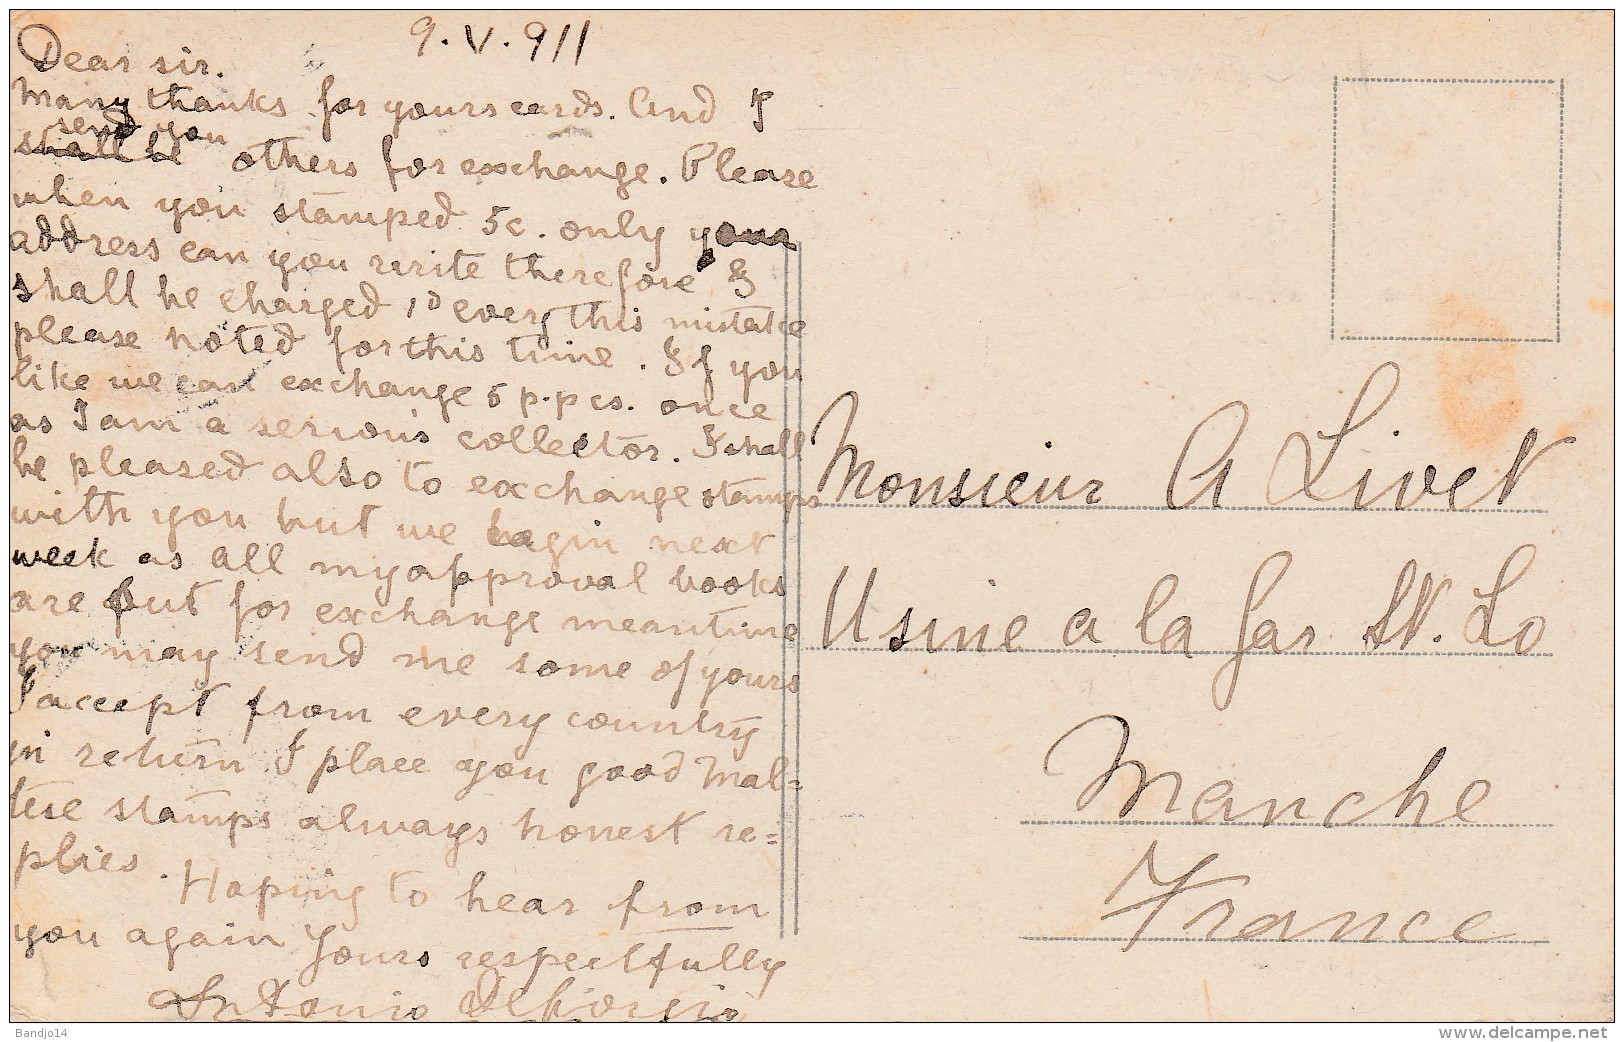 9.V.911
Dear sir.
Many thanks for yours cards. And I
send you
shall be others for exchange. Please
when you stamped 5c. only your
address can you write therefore I
shall be charged 1D every this mistake
please noted for this time. If you
like we can exchange 6 p.pcs. once
as I am a serious collector. I shall
be pleased also to exchange stamps
with you but we begin next
week as all my approval books
are put for exchange meantime
you may send me some of yours
I accept from every country
in return I place you good Mal-
tese stamps always honest re=
plies. Hoping to hear from
you again Yours respectfully
Antonio
Monsieur A Livet
Usine a la Gar St. Lo
Manche
France
Bandjo14
www.delcampe.net